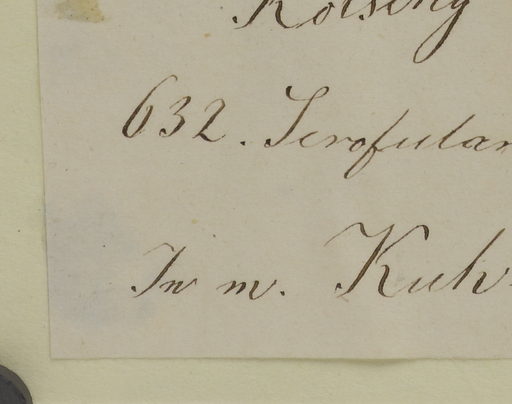 Kotschy
632. Scrofular
In m. Kuh